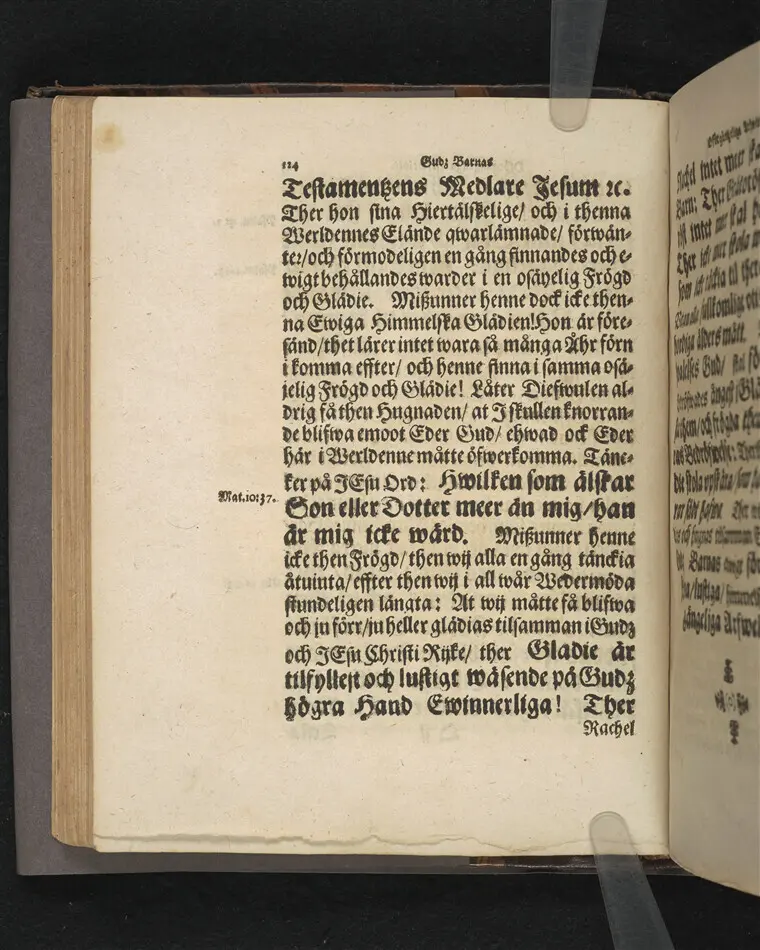 124 Gudz Barnas
Testamentzens Medlare Jesum ꝛc.
Ther hon sina Hiertälskelige/ och i thenna
Werldennes Elände qwarlämnade/ förwän-
te:/och förmodeligen en gång finnandes och e-
wigt behållandes warder i en osäyelig Frögd
och Glädie. Mißunner henne dock icke then-
na Ewiga Himmelska Glädien! Hon är före-
sänd/thet lärer intet wara så många Åhr förn
i komma effter/ och henne finna i samma osä-
jelig Frögd och Glädie! Låter Diefwulen al-
drig få then Hugnaden/ at I skullen knorran-
de blifwa emoot Eder Gud/ ehwad ock Eder
här i Werldenne måtte öfwerkomma. Tänc-
ker på JEsu Ord: Hwilken som älskar
Mat.10:37.
Son eller Dotter meer än mig/han
är mig icke wärd. Mißunner henne
icke then Frögd/ then wij alla en gång tänckia
åtniuta/effter then wij i all wår Wedermöda
stundeligen längta: At wij måtte få blifwa
och ju förr/ju heller glädias tilsamman i Gudz
och JEsu Christi Rijke/ ther Gladie är
tilfyllest och lustigt wäsende på Gudz
högra Hand Ewinnerliga! Ther
Rachel